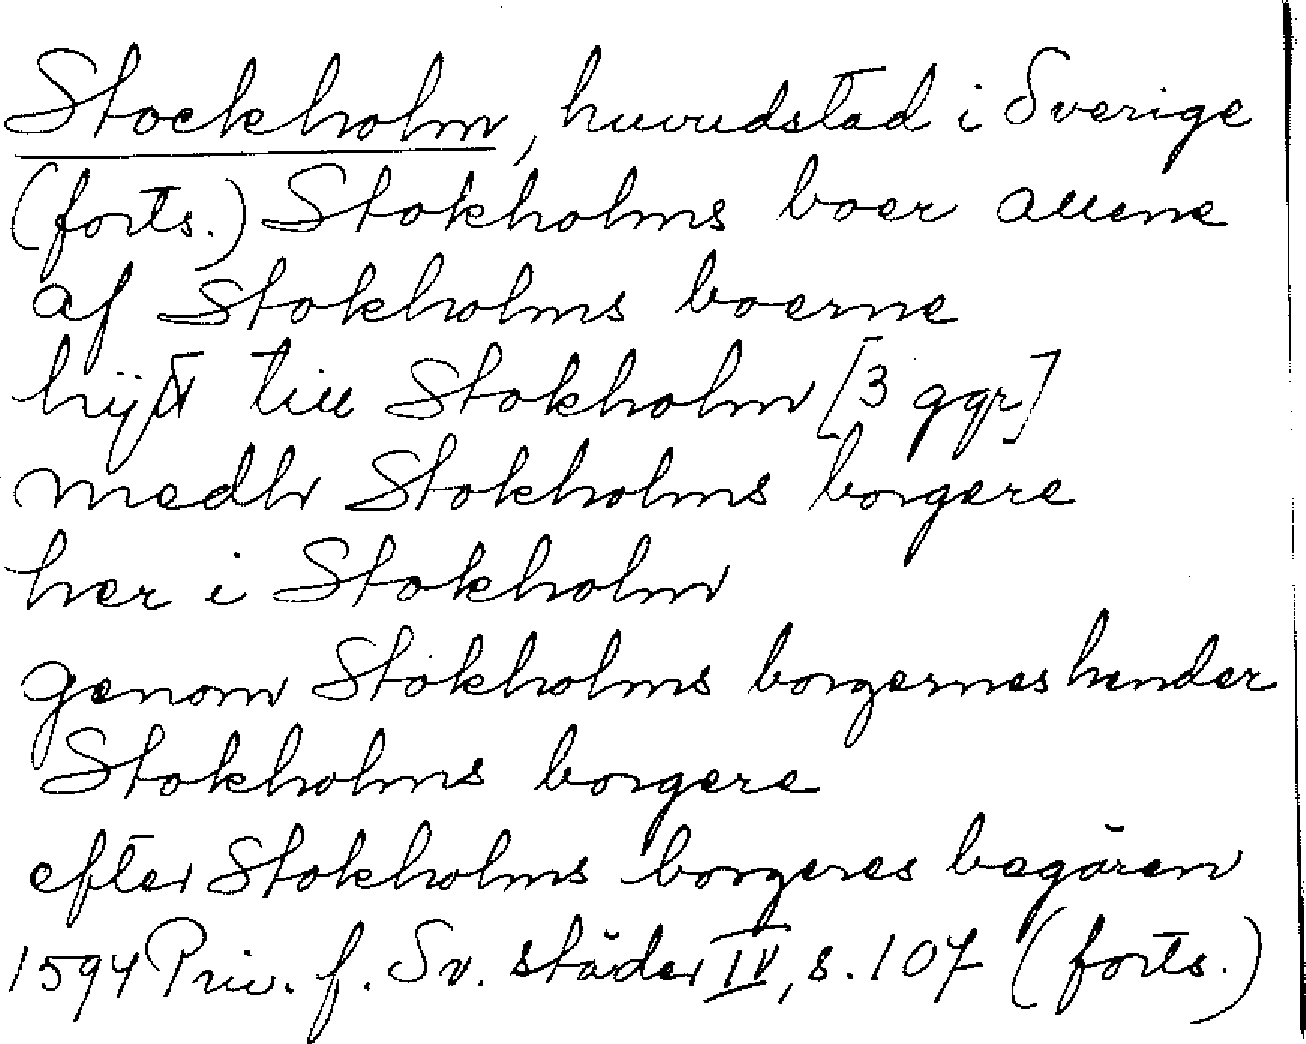 Stockholm, huvudstad i Sverige
(forts.) Stokholms boer allene
af Stokholms boerne
hijtt till Stokholm [3 ggr]
medh Stokholms borgere
her i Stokholm
genom Stokholms borgernes hender
Stokholms borgere
efter Stokholms borgeres begären
1594 Priv. f. Sv. städer IV, s. 107 (forts.)